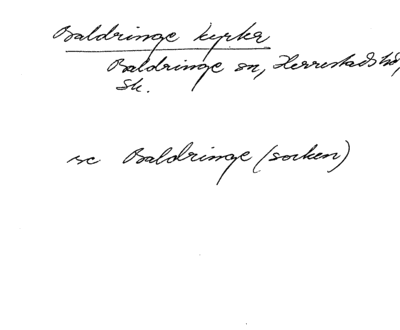 Baldringe kyrka
Baldringe sn, Herrestads hd,
Sk.
se Baldringe (socken)